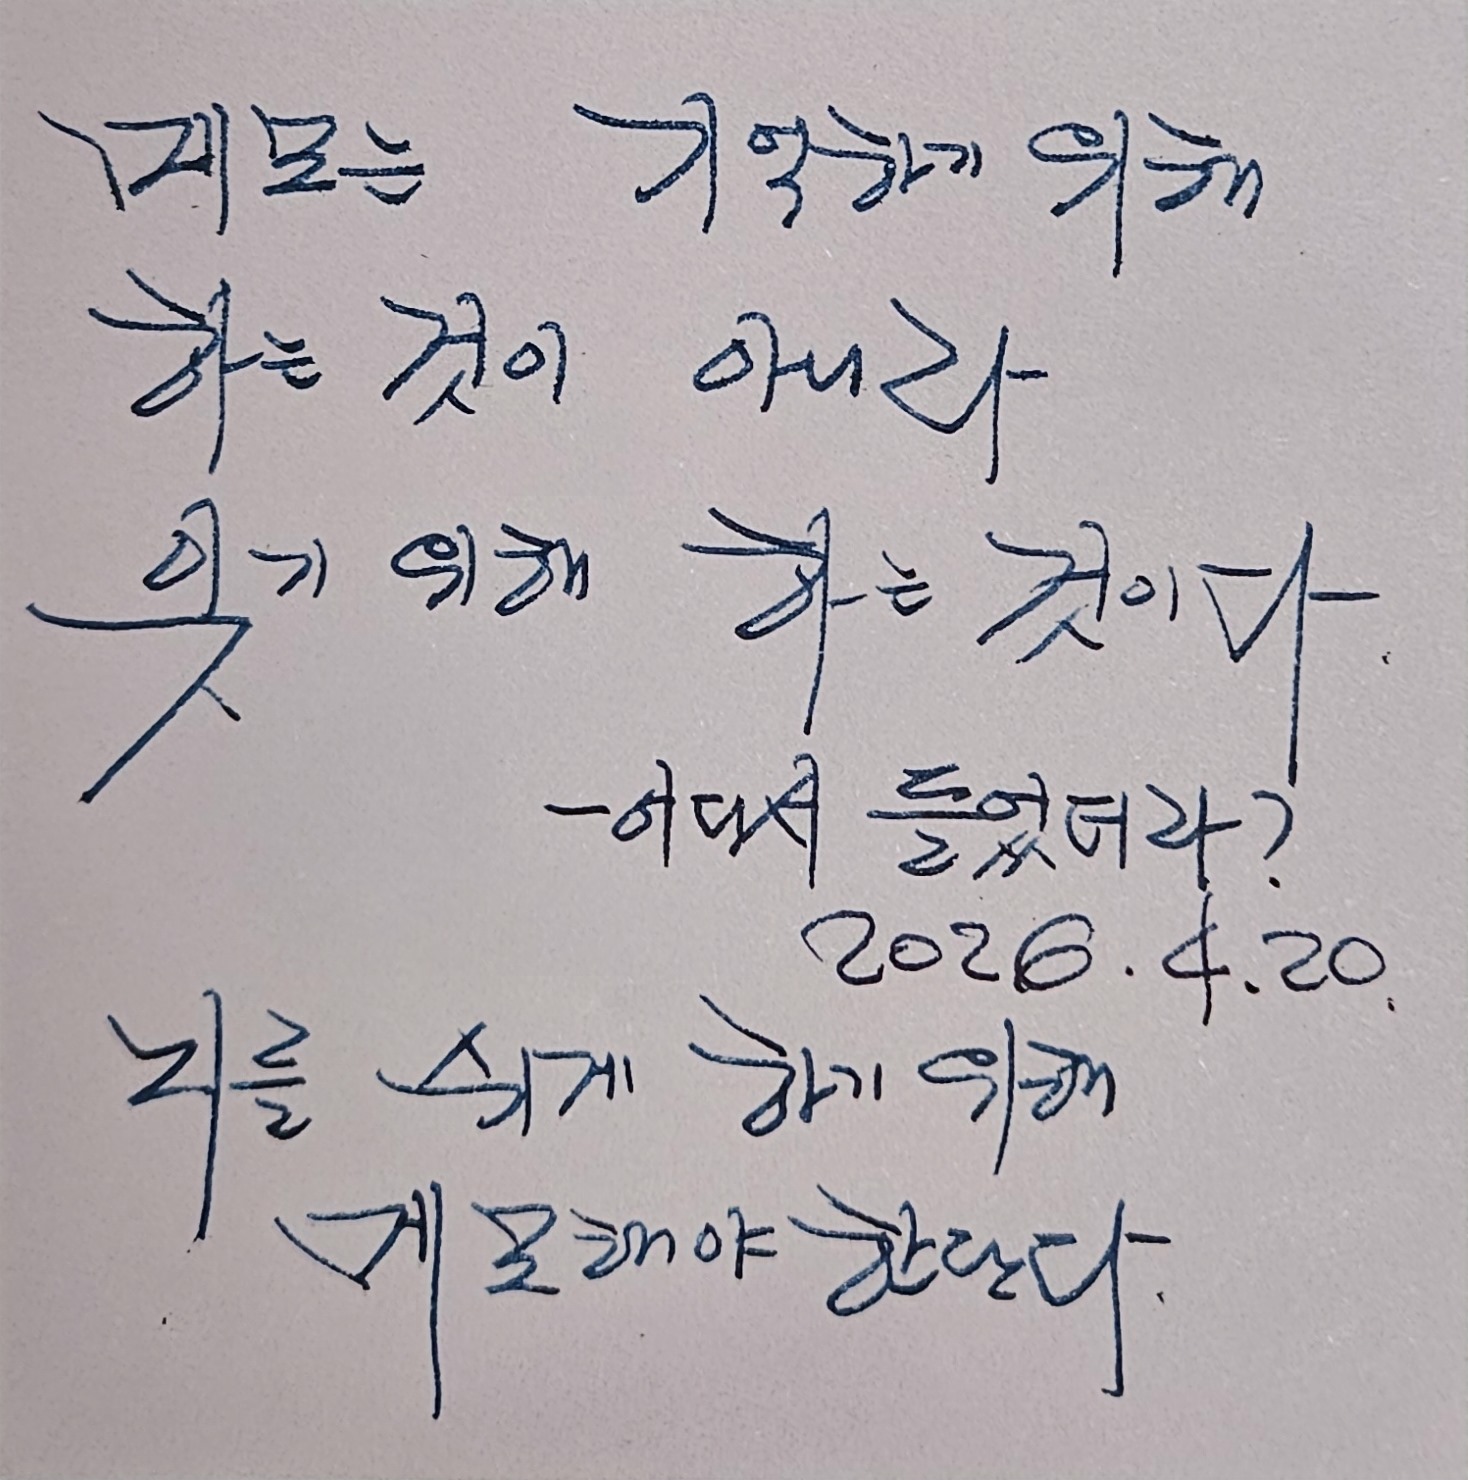 메모는 기억하기 위해
하는 것이 아니라
잊기 위해 하는 것이다.
-어디서 들었더라?
2026.4.20.
뇌를 쉬게 하기 위해
메모해야 한단다.